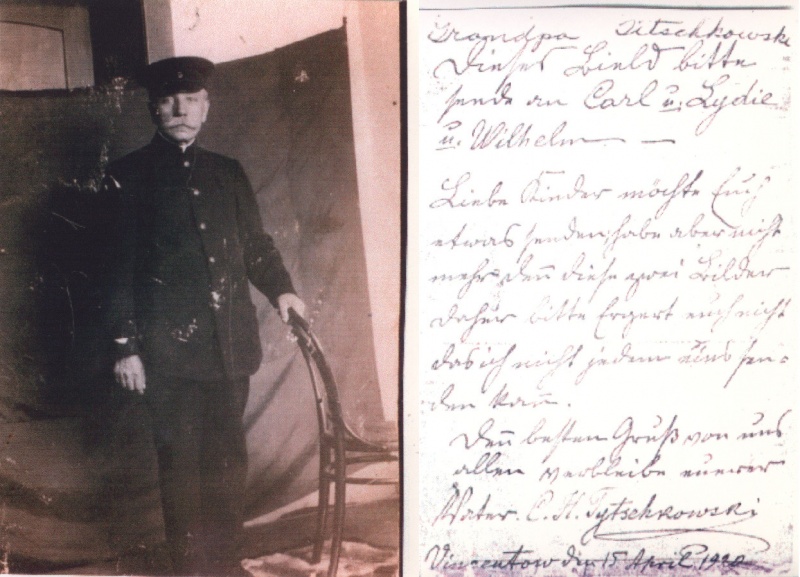 Grandpa Titschkowski
Dieses Bield bitte
sende an Carl u. Lydie
u. Wilhelm —
Liebe Kinder möchte Euch
etwas senden habe aber nicht
mehr den̄ diese zwei Bilder
daher bitte Ergert euch nicht
das ich nicht jedem eins sen-
den kan̄.
Den̄ besten Gruß von uns
allen verbleibe euerer
Vater. C. H. Tytschkowski
Vincentow den 15 April